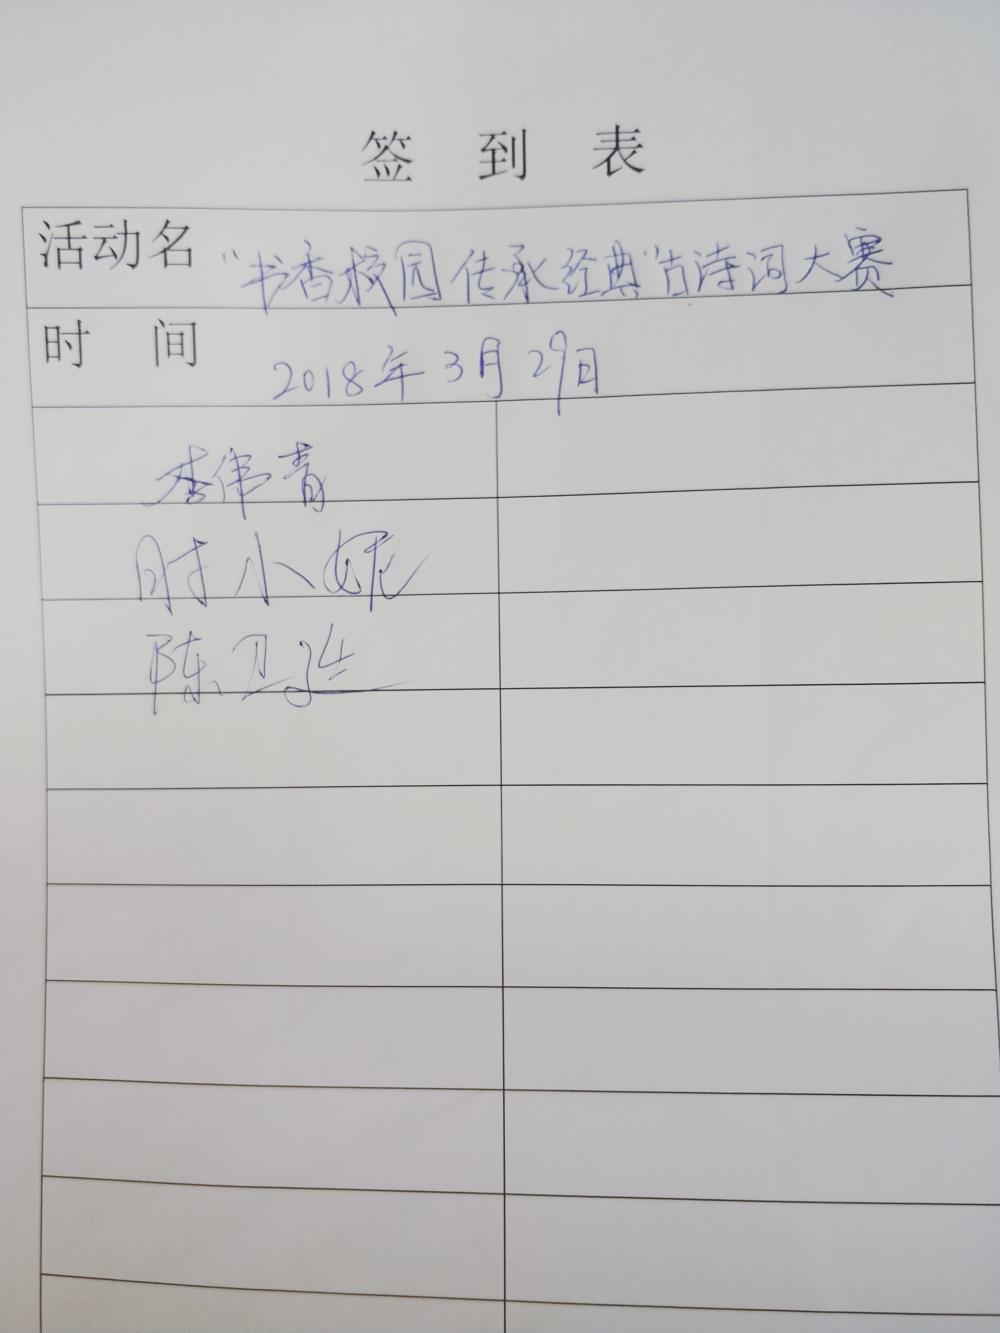 签 到 表
活动名 “书香校园 传承经典”古诗词大赛
时 间 2018年3月29日
李伟青
时小妮
陈卫